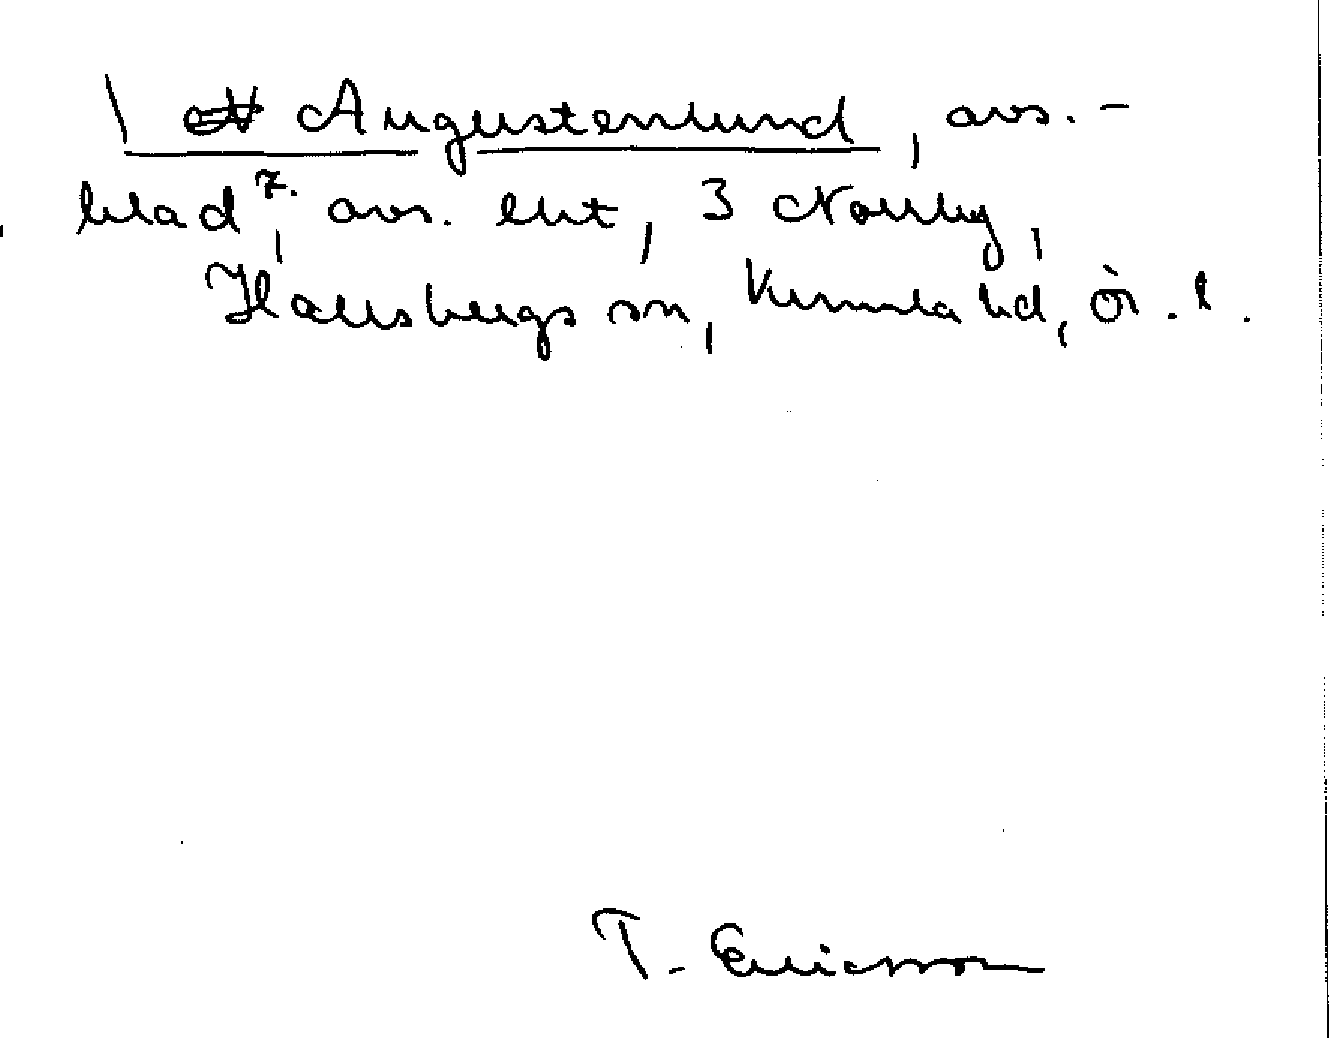 \ Augustenlund, avs.-
blad 7., avs. ekt, 3 Norrby,
Hallsbergs sn, Kumla hd, ör. l.
T. Ericsson